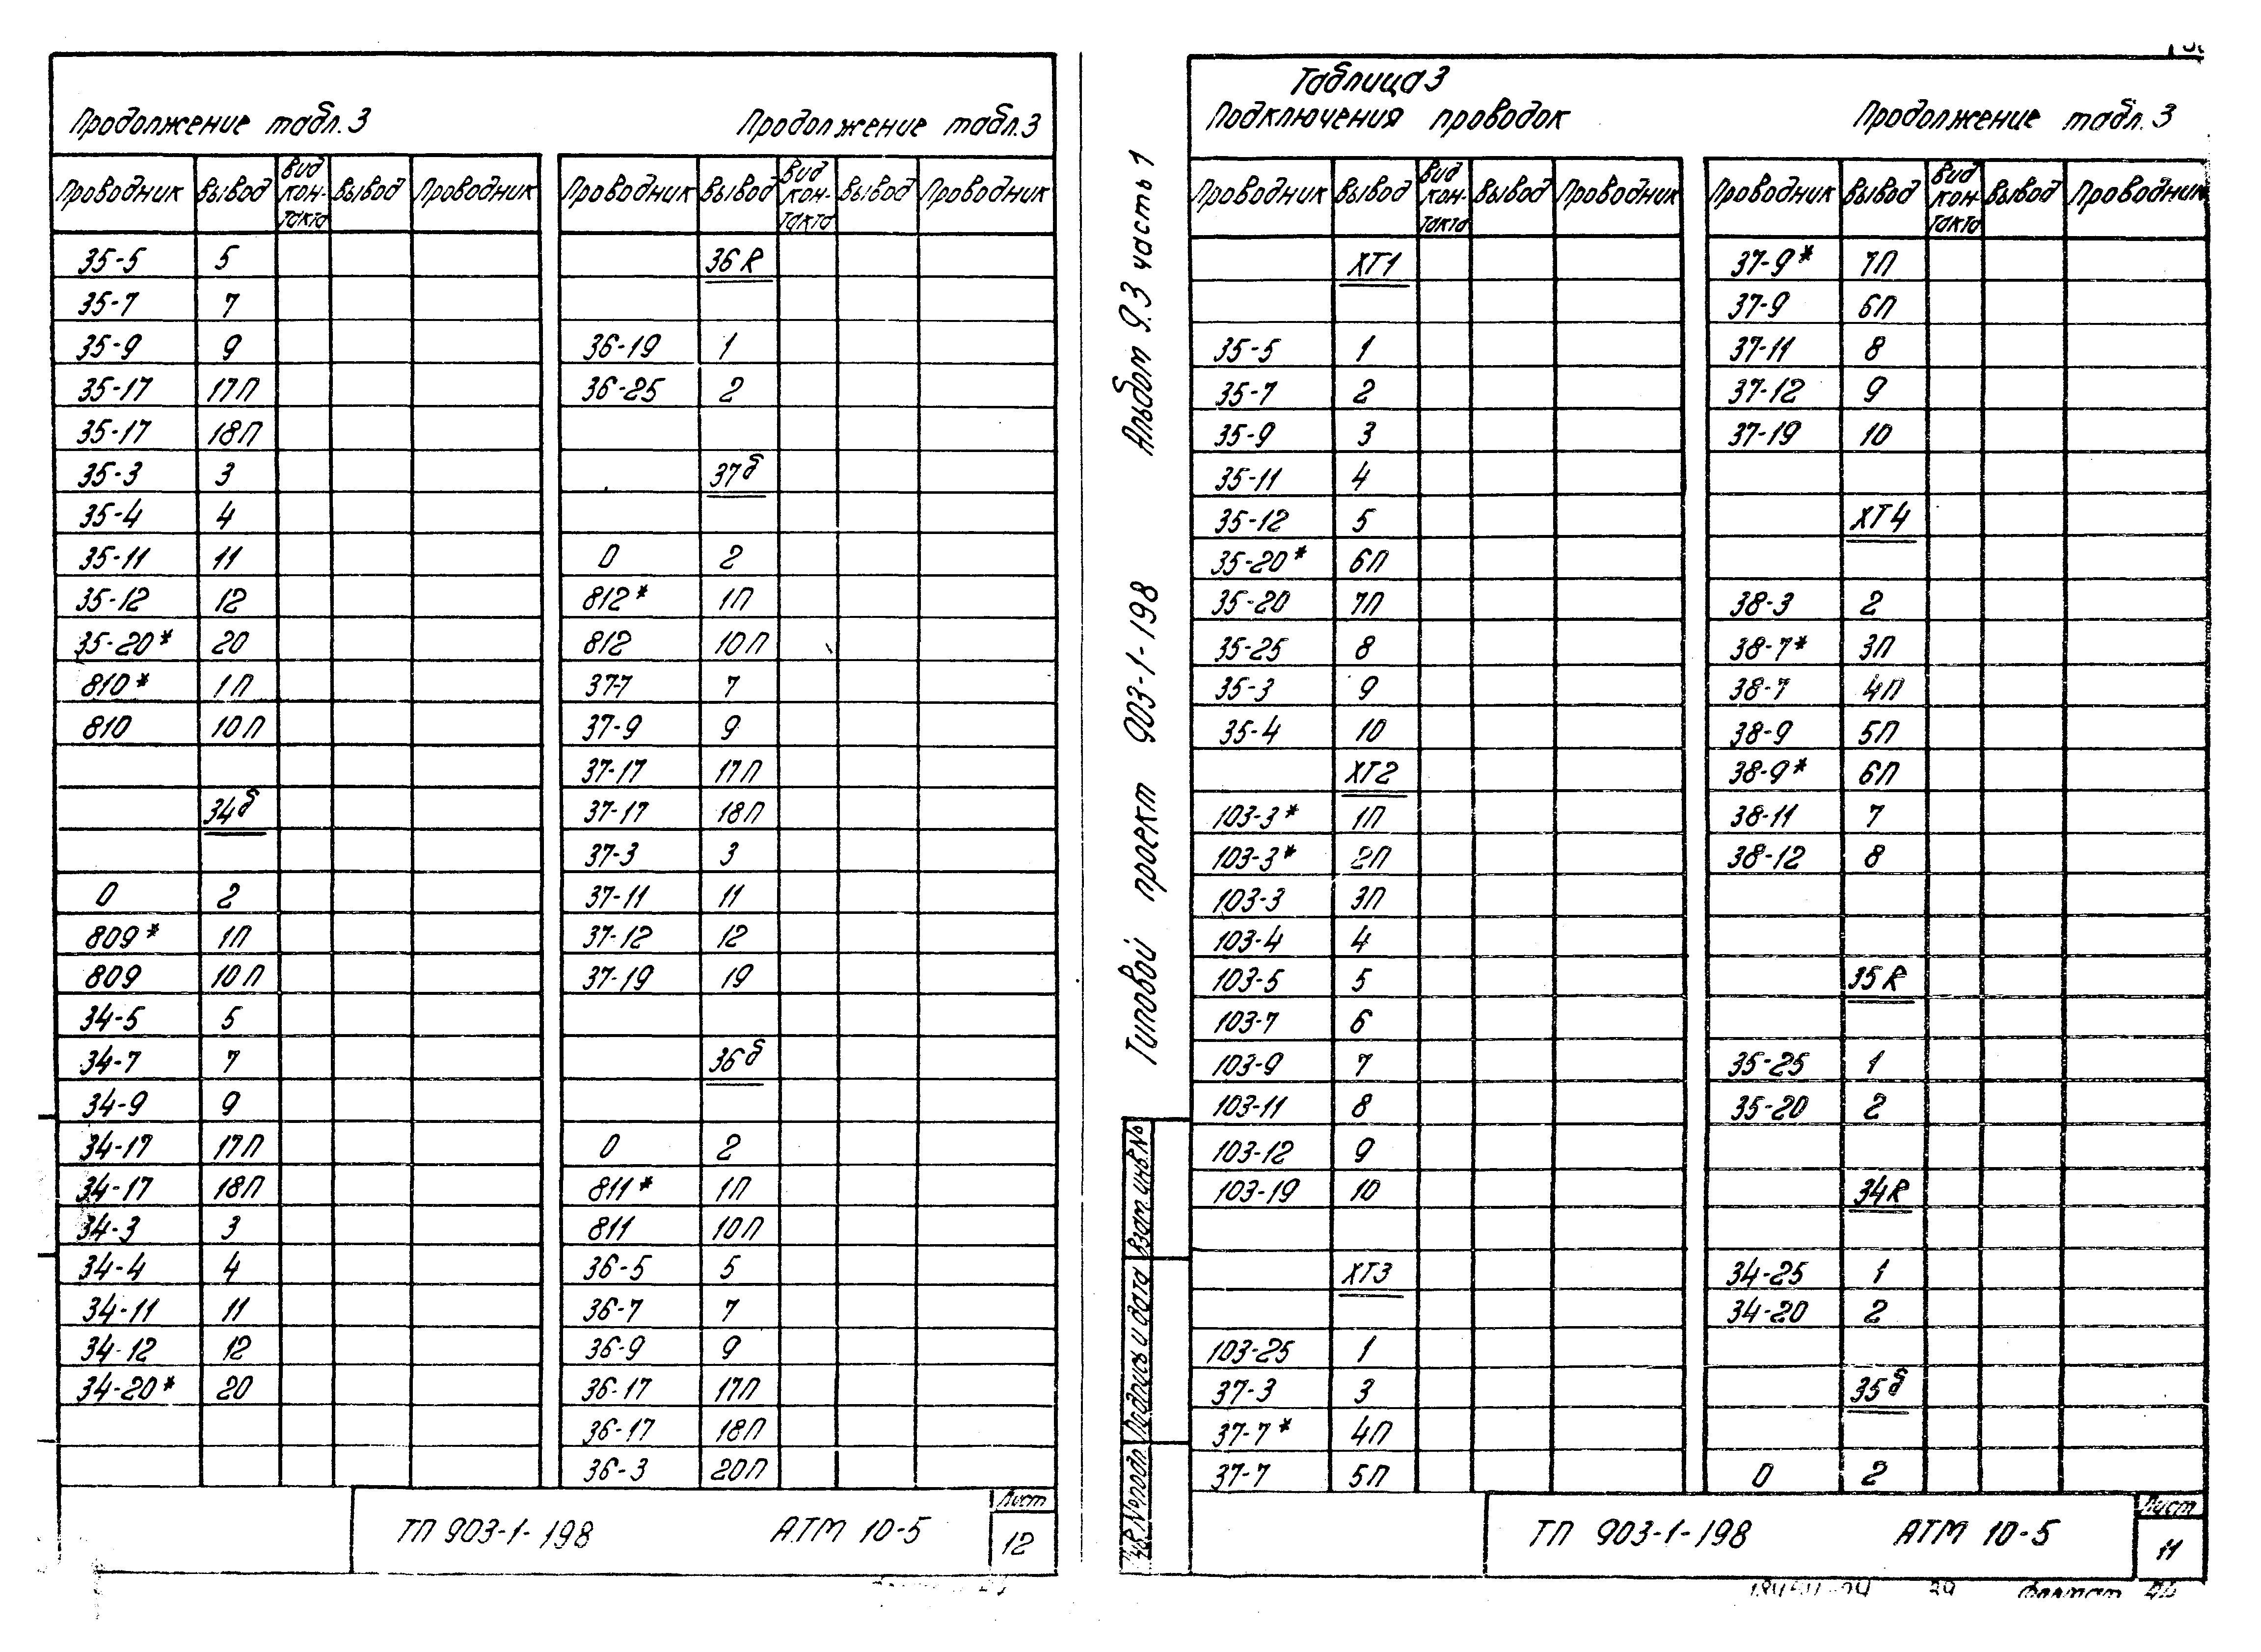 Продолжение табл.3
Продолжение табл.3
Проводник Вывод Вид кон-такта Вывод Проводник
35-5 5
35-7 7
35-9 9
35-17 17П
35-17 18П
35-3 3
35-4 4
35-11 11
35-12 12
35-20* 20
810* 1П
810 10П
34б
0 2
809* 1П
809 10П
34-5 5
34-7 7
34-9 9
34-17 17П
34-17 18П
34-3 3
34-4 4
34-11 11
34-12 12
34-20* 20
Проводник Вывод Вид кон-такта Вывод Проводник
36R
36-19 1
36-25 2
37б
0 2
812* 1П
812 10П
37-7 7
37-9 9
37-17 17П
37-17 18П
37-3 3
37-11 11
37-12 12
37-19 19
36б
0 2
811* 1П
811 10П
36-5 5
36-7 7
36-9 9
36-17 17П
36-17 18П
36-3 20П
ТП 903-1-198 АТМ 10-5
Лист
12
Типовой проект 903-1-198 Альбом 9.3 часть 1
Взам. инв.№
Подпись и дата
Инв.№подл.
Таблица3
Подключения проводок
Продолжение табл.3
Проводник Вывод Вид кон-такта Вывод Проводник
ХТ1
35-5 1
35-7 2
35-9 3
35-11 4
35-12 5
35-20* 6П
35-20 7П
35-25 8
35-3 9
35-4 10
ХТ2
103-3* 1П
103-3* 2П
103-3 3П
103-4 4
103-5 5
103-7 6
103-9 7
103-11 8
103-12 9
103-19 10
ХТ3
103-25 1
37-3 3
37-7* 4П
37-7 5П
Проводник Вывод Вид кон-такта Вывод Проводник
37-9* 7П
37-9 6П
37-11 8
37-12 9
37-19 10
ХТ4
38-3 2
38-7* 3П
38-7 4П
38-9 5П
38-9* 6П
38-11 7
38-12 8
35R
35-25 1
35-20 2
34R
34-25 1
34-20 2
35б
0 2
ТП 903-1-198 АТМ 10-5
Лист
11
Формат